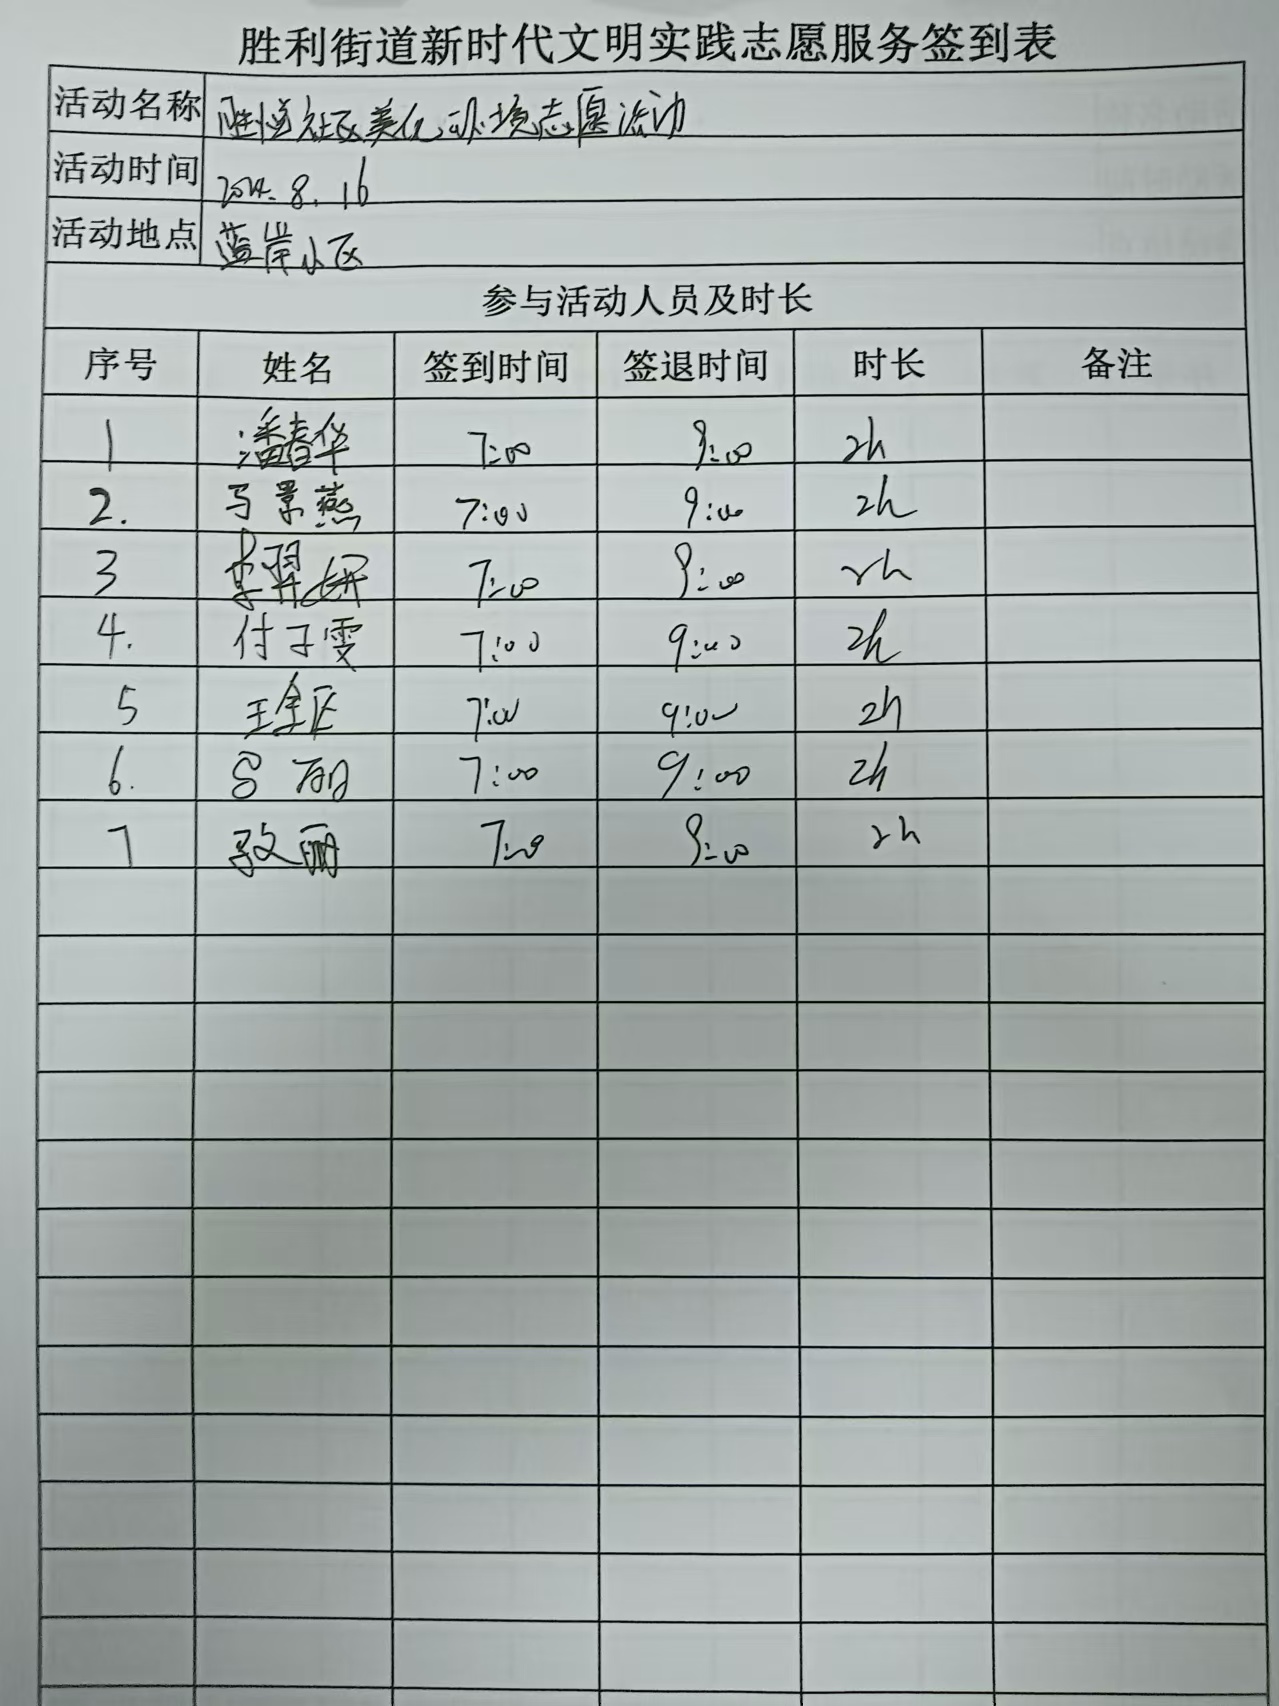 胜利街道新时代文明实践志愿服务签到表
活动名称 胜悦社区美化环境志愿活动
活动时间 2024.8.16
活动地点 蓝岸小区
参与活动人员及时长
序号 姓名 签到时间 签退时间 时长 备注
1 潘春华 7:00 9:00 2h
2. 马景燕 7:00 9:00 2h
3 李翠妍 7:00 9:00 2h
4. 付子雯 7:00 9:00 2h
5 王全 7:00 9:00 2h
6. 吕丽 7:00 9:00 2h
7 丽 7:00 9:00 2h